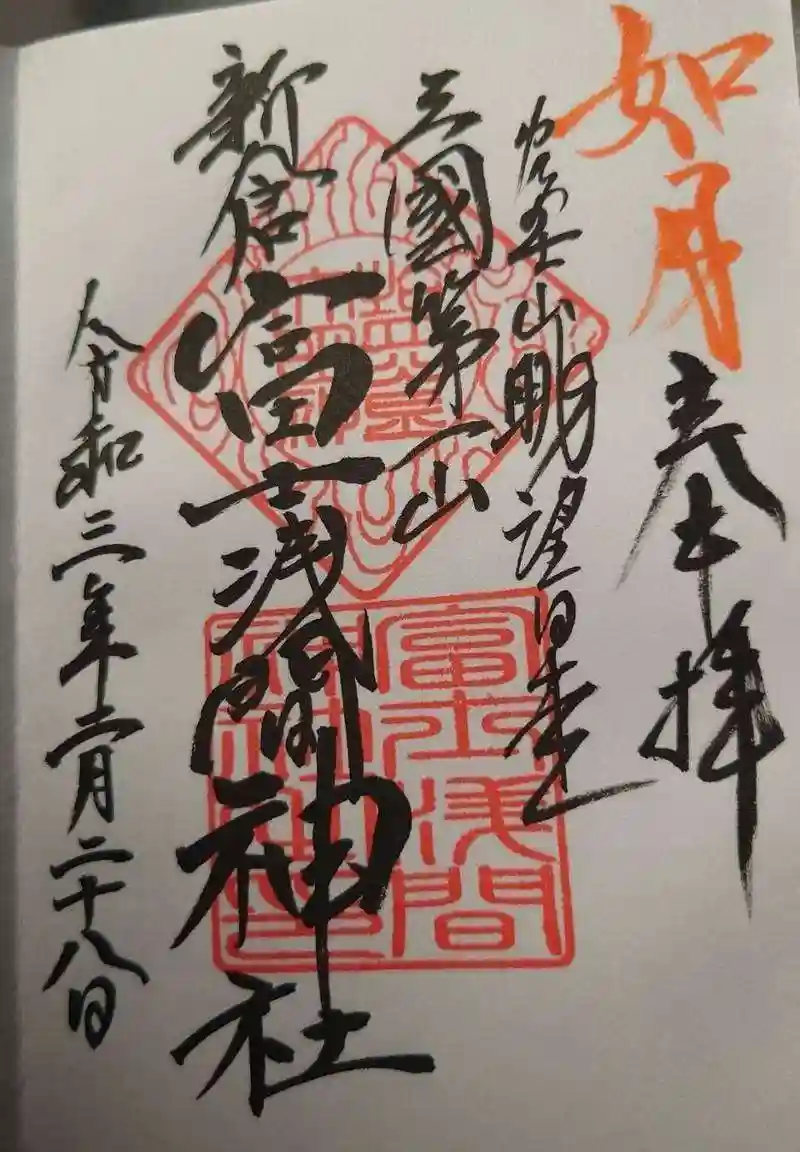 如月
奉拝
山明望日
三國第一山
新倉富士浅間神社
令和三年二月二十八日
富士浅間
神社之印